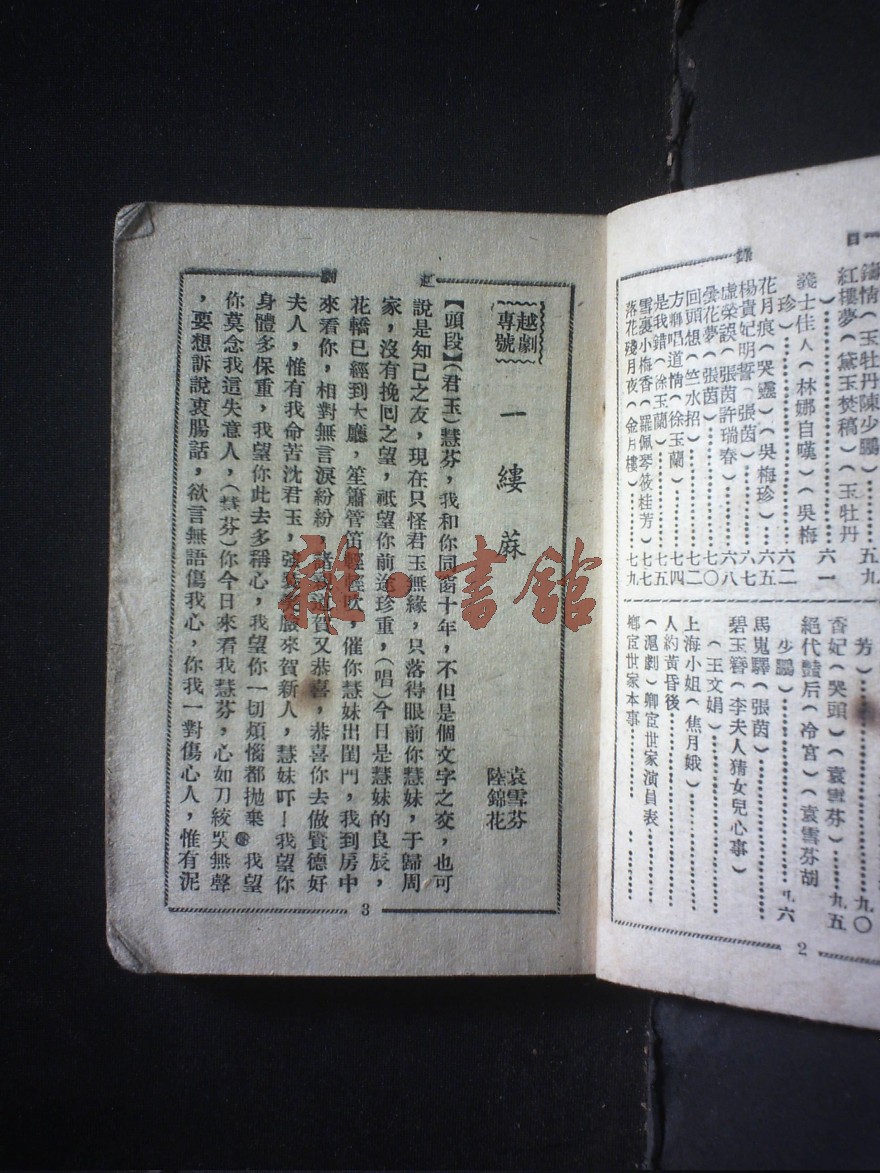 目錄
鏽情(玉牡丹陳少鵬)五九
紅樓夢(黛玉焚稿)(玉牡丹
)六一
義士佳人(林娜自嘆)(吳梅
珍)六二
花月痕(哭靈)(吳梅珍)六五
楊貴妃明誓(張茵)六七
虛榮誤(張茵許瑞春)六八
雲花夢(張茵)七〇
回頭想(竺水招)七二
方卿唱道情(徐玉蘭)七四
是我錯(徐玉蘭)七五
雪裏小梅香(羅佩琴筱桂芳)七七
落花殘月夜(金月樓)七九
芳)九〇
香妃(哭頭)(袁雪芬)九五
絕代豔后(冷宮)(袁雪芬胡
少鵬)九六
馬嵬驛(張茵)
碧玉簪(李夫人猜女兒心事)
(王文娟)
上海小姐(焦月娥)
人約黃昏後
(滬劇)鄉宦世家演員表
鄉宦世家本事
2
越劇
越劇
專號
一縷蔴
袁雪芬
陸錦花
【頭段】(君玉)慧芬,我和你同窗十年,不但是個文字之交,也可
說是知己之友,現在只怪君玉無緣,只落得眼前你慧妹,于歸周
家,沒有挽囘之望,祇望你前途珍重,(唱)今日是慧妹的良辰,
花轎已經到大廳,笙簫管笛輕輕吹,催你慧妹出閨門,我到房中
來看你,相對無言淚紛紛,諸親道賀又恭喜,恭喜你去做賢德好
夫人,惟有我命苦沈君玉,強裝笑臉來賀新人,慧妹吓!我望你
身體多保重,我望你此去多稱心,我望你一切煩惱都拋棄,我望
你莫念我這失意人,(慧芬)你今日來看我慧芬,心如刀絞哭無聲
,要想訴說衷腸話,欲言無語傷我心,你我一對傷心人,惟有泥
3
雜·書館